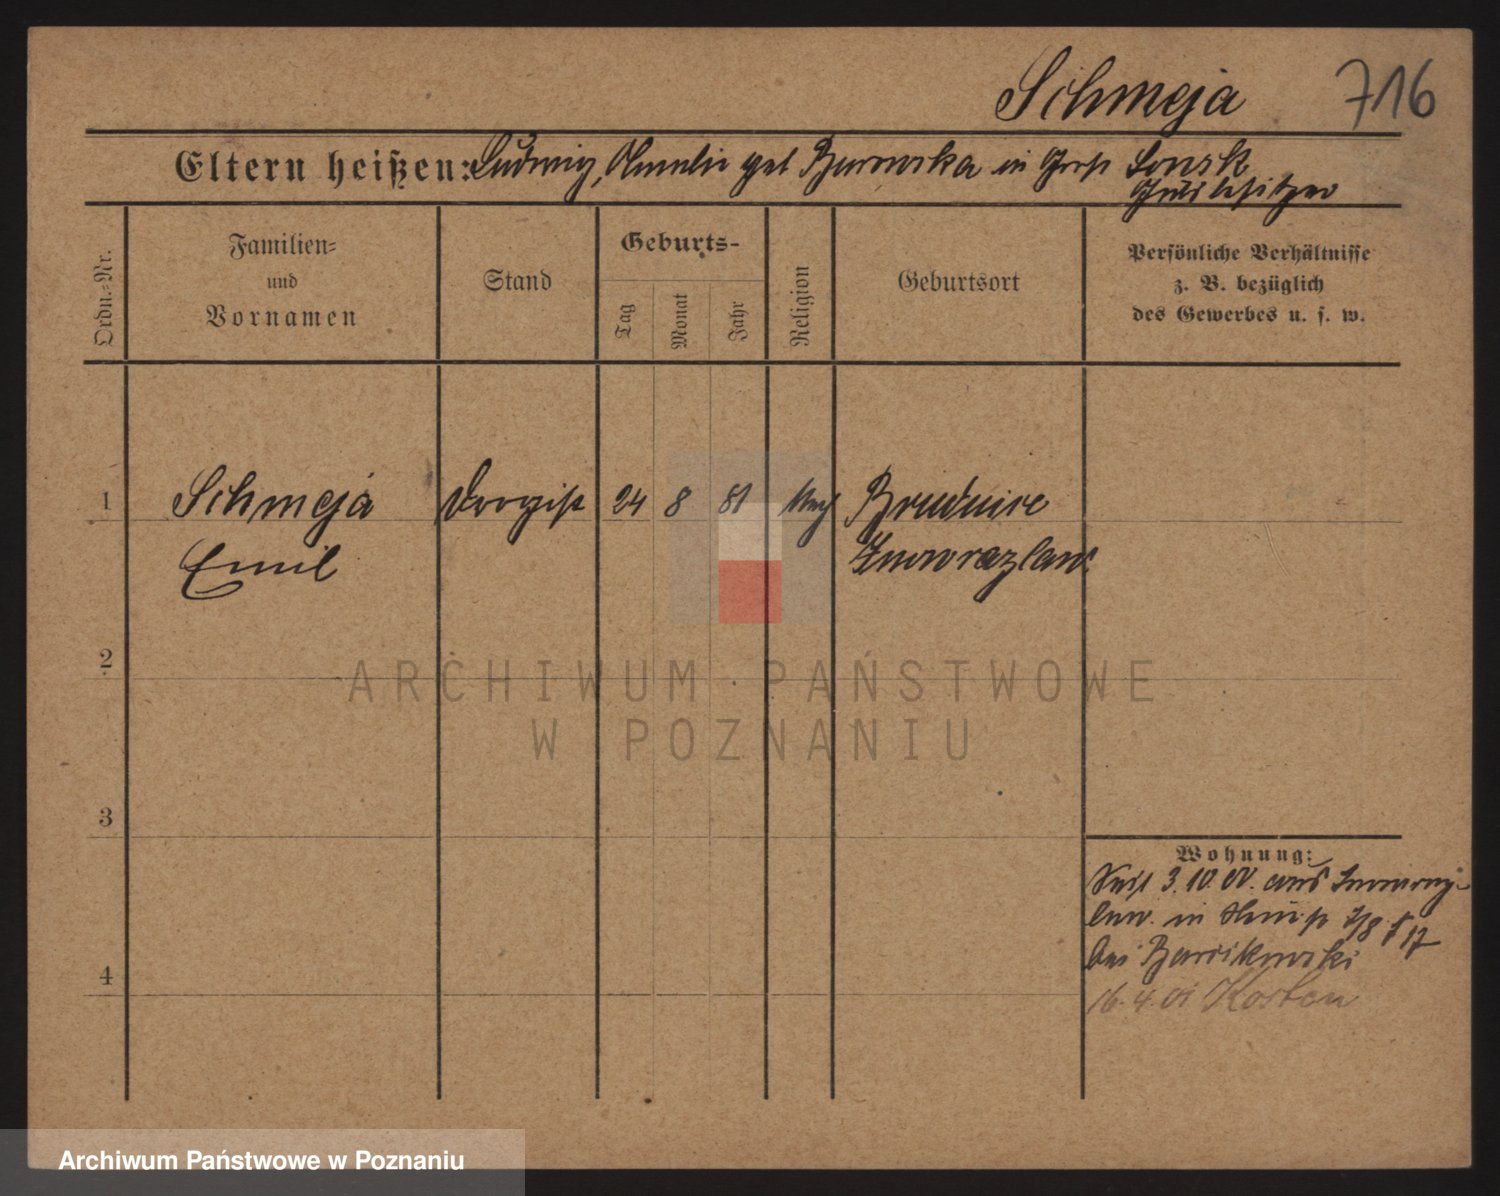 Schmeja 716
Eltern heißen: Ludwig, Amalie geb Burowska in Gross Lonsk
Gutsbesitzer
Ordn.-Nr.
Familien-
und
Vornamen
Stand
Geburts-
Tag
Monat
Jahr
Religion
Geburtsort
Persönliche Verhältnisse
z. B. bezüglich
des Gewerbes u. s. w.
1 Schmeja Drogist 24 8 81 Brudnice
Emil Inowrazlaw.
2
ARCHIWUM PAŃSTWOWE
W POZNANIU
3
Wohnung:
3.10.00. aus Inowraz-
law. in
bei
4
16.4.01 Kosten
Archiwum Państwowe w Poznaniu